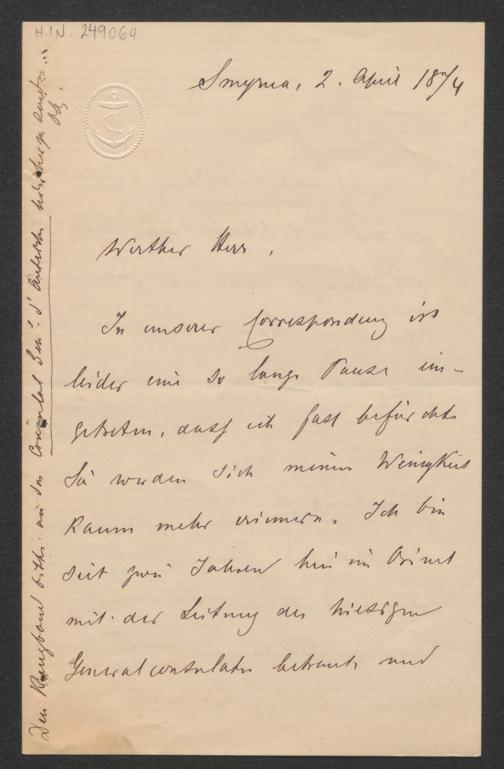 H.I.N. 249064
Smyrna, 2. April 18/4
Werther Herr,
In unserer Correspondenz ist
leider eine so lange Pause ein-
getreten, dass ich fast befürchte
Sie werden sich meiner Wenigkeit
kaum mehr erinnern. Ich bin
seit zwei Jahren hier im Orient
mit der Leitung des hiesigen
Generalconsulates betraut und
Den bitte an das Consulat